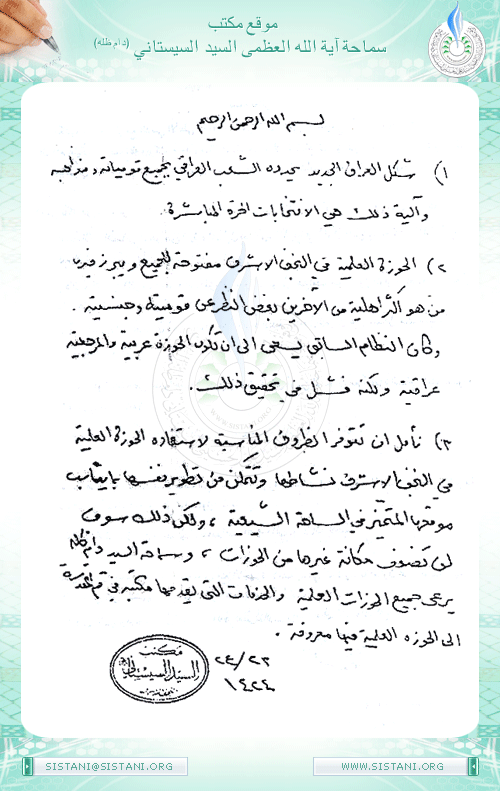 موقع مكتب
سماحة آية الله العظمى السيد السيستاني (دام ظله)
بسم الله الرحمن الرحيم
١) شكل العراق الجديد يحدده الشعب العراقي بجميع قومياته ومذاهبه
وآلية ذلك هي الانتخابات الحرة المباشرة.
٢) الحوزة العلمية في النجف الاشرف مفتوحة للجميع ويبرز فيها
من هو أكثر اهلية من الآخرين بغض النظر عن قوميته وجنسيته .
وكان النظام السابق يسعى الى ان تكون الحوزة عربية والمرجعية
عراقية ولكنه فشل في تحقيق ذلك .
٣) نأمل ان تتوفر الظروف المناسبة لاستعاده الحوزة العلمية
في النجف الاشرف نشاطها وتتمكن من تطوير نفسها بما يناسب
موقعها المتميز في الساحة الشيعية ، ولكن ذلك سوف
لن تضعف مكانة غيرها من الحوزات ، وسماحة السيد دام ظله
يرعى جميع الحوزات العلمية والخدمات التي يقدمها مكتبه في قم المقدسة
الى الحوزه العلمية فيها معروفة .
٢٤/٢٣
١٤٢٤
مكتب
السيد السيستاني
SISTANI@SISTANI.ORG
WWW.SISTANI.ORG